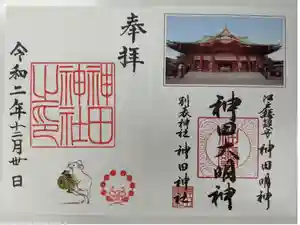 奉拝
神田神社之印
令和二年十二月廿日
江戸総鎮守 神田明神
神田大明神
別表神社 神田神社